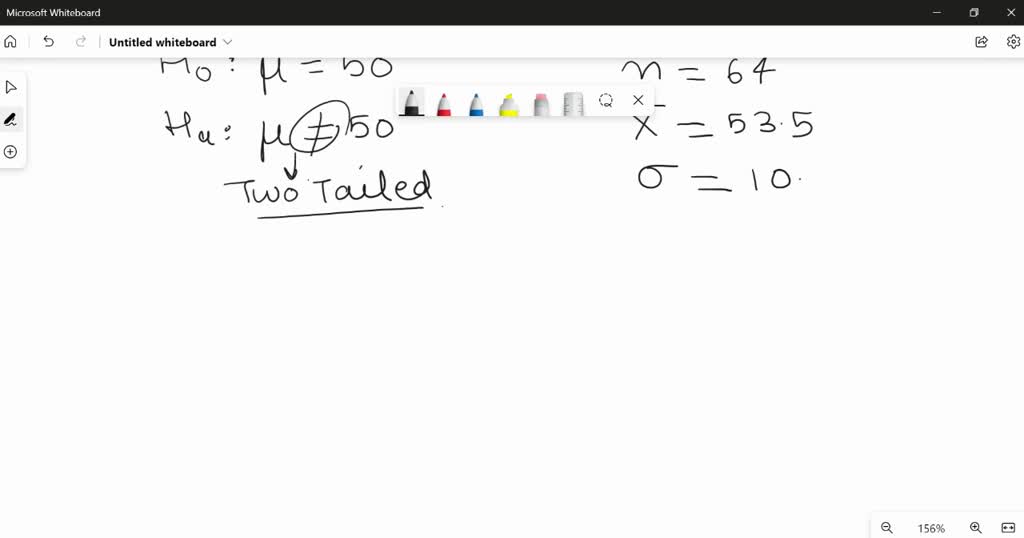 Microsoft Whiteboard
Untitled whiteboard
H₀: μ = 50
Hₐ: μ ≠ 50
Two Tailed
n = 64
x̄ = 53.5
σ = 10.
156%